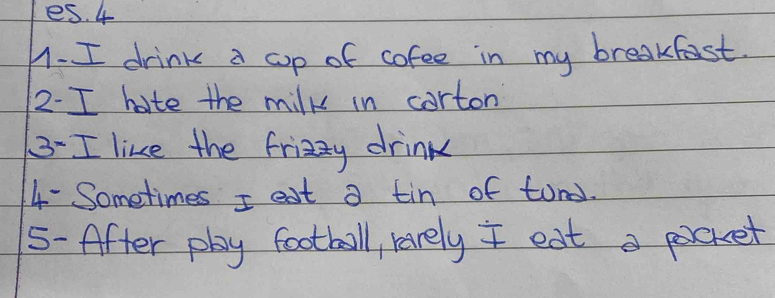 es. 4
1-I drink a cup of cofee in my breakfast.
2-I hate the milk in carton
3-I like the frizzy drink
4- Sometimes I eat a tin of tuna.
5- After play football, rarely I eat a packet